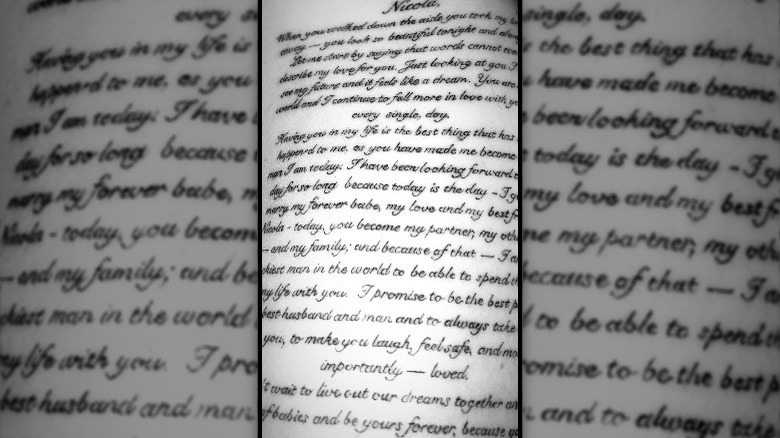 Nicola,
When you walked down the aisle, you took my
away — you look so beautiful tonight and
Let me start by saying that words cannot
describe my love for you. Just looking at you I
see my future and it feels like a dream. You are
world and I continue to fall more in love with
every single, day.
Having you in my life is the best thing that has
happen'd to me, as you have made me become
man I am today. I have been looking forward
day for so long because today is the day - I
marry my forever babe, my love and my best
Nicola - today, you become my partner, my
— and my family; and because of that — I
man in the world to be able to spend
my life with you. I promise to be the best
best husband and man and to always take
you, to make you laugh, feel safe, and
importantly — loved.
wait to live out our dreams together
of babies and be yours forever, because